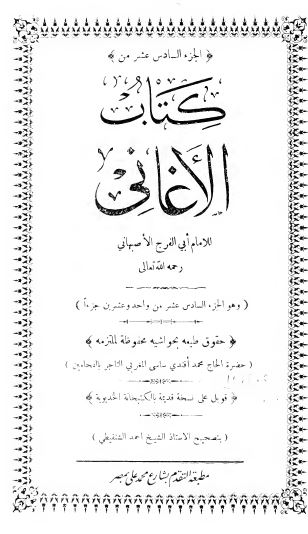 ﴿ الجزء السادس عشر من ﴾
كتاب
الأغاني
للامام أبي الفرج الأصبهاني
رحمه الله تعالى
( وهو الجزء السادس عشر من واحد وعشرين جزءاً )
﴿ حقوق طبعه بحواشيه محفوظة لملتزمه ﴾
( حضرة الحاج محمد أفندي ساسى المغربي التاجر بالفحامين )
﴿ قوبل على نسخة قديمة بالكتبخانة الخديوية ﴾
( بتصحيح الاستاذ الشيخ احمد الشنقيطي )
مطبعة التقدم بشارع محمد علي بمصر